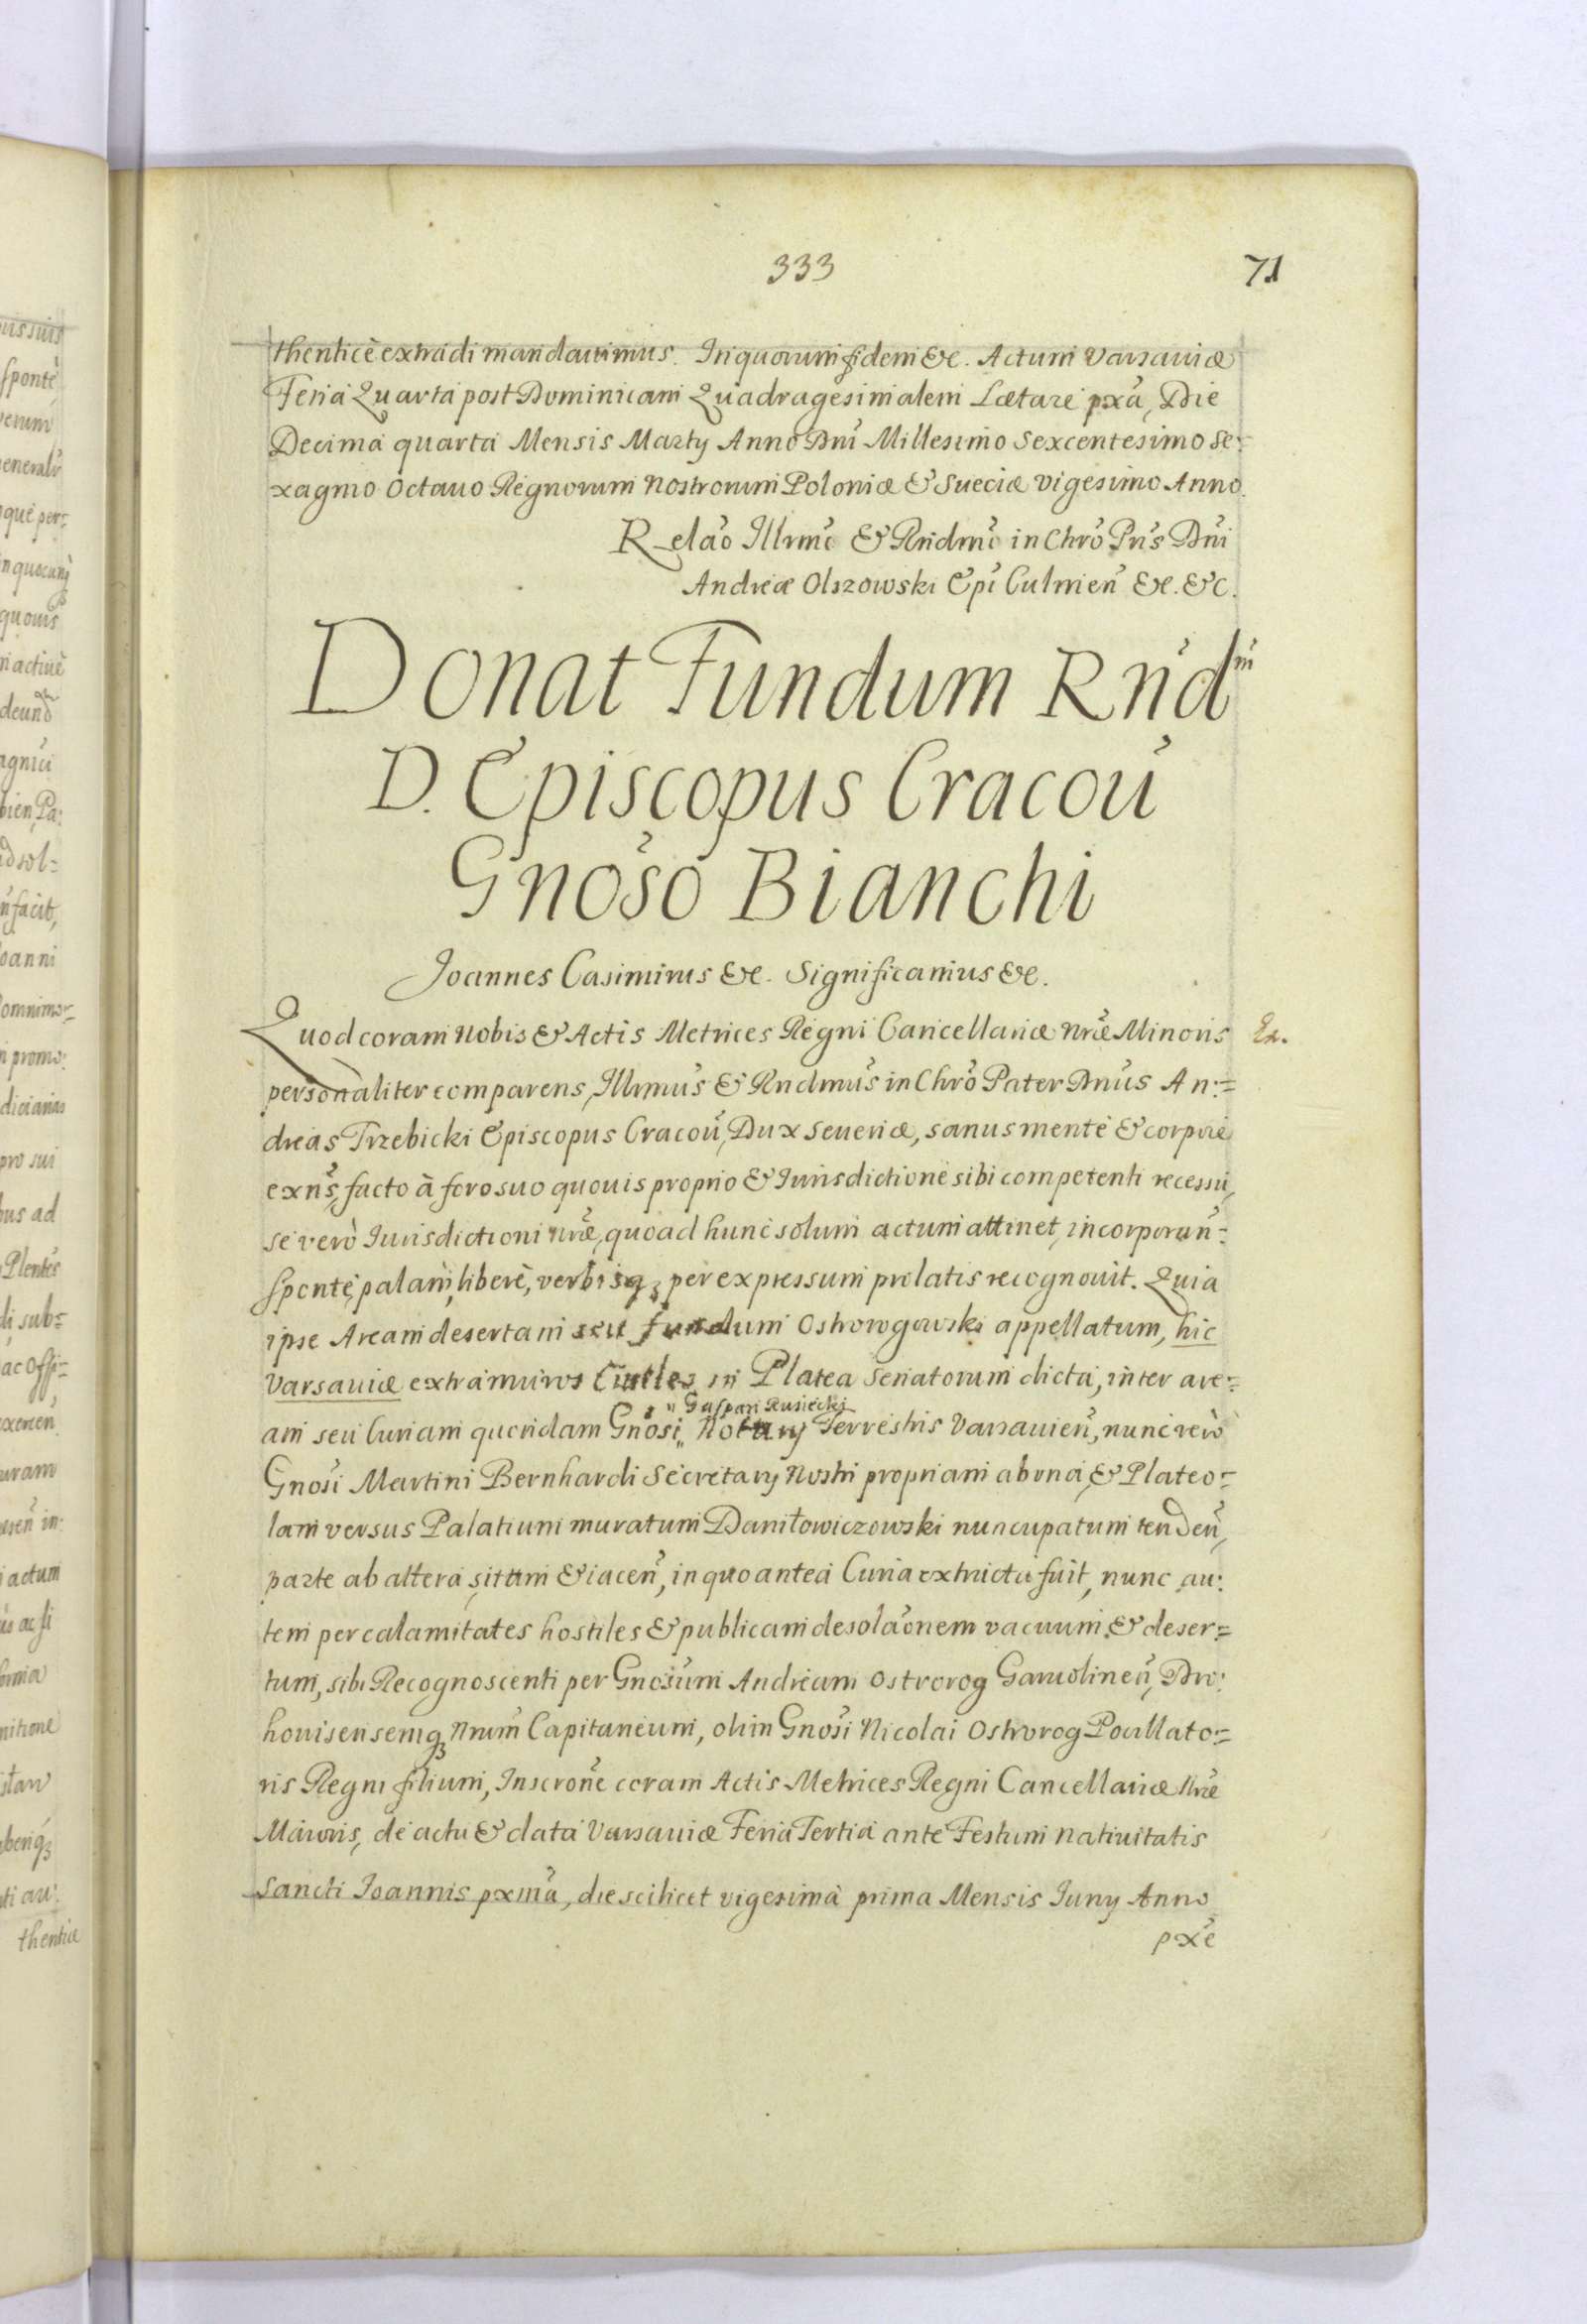 333
71
thenticè extradi mandavimus. In quorum fidem &c. Actum Varsaviæ
Feria Quarta post Dominicam Quadragesimalem Lætare pxã, Die
Decima quarta Mensis Marty Anno Dnĩ Millesimo Sexcentesimo Se:=
xagmo Octauo Regnorum Nostrorum Poloniæ & Sueciæ vigesimo Anno.
Relaõ Illrmĩ & Rndmĩ in Chrõ Prĩs Dnĩ
Andreæ Olszowski Epĩ Culmeñ &c. &c.
Donat Fundum Rñd^m
D. Episcopus Cracoũ
Gnõso Bianchi
Joannes Casimirus &c. Significamus &c.
Quod coram Nobis & Actis Metrices Regni Cancellariæ nræ̃ Minoris
personaliter comparens, Illrmũs & Rndmũs in Chrõ Pater Dnũs An:=
dreas Trzebicki Episcopus Cracoũ, Dux Seueriæ, sanus mente & corpore
exñs, facto à foro suo quouis proprio & Iurisdictione sibi competenti recessu,
se verò Iurisdictioni nræ̃, quoad hunc solum actum attinet, incorporañ:
sponte, palàm, liberè, verbisq3 per expressum prolatis recognouit. Quia
ipse Aream desertam seu fundum Ostrorogowski appellatum, hic
Varsaviæ extra muros Ciuiles in Platea Senatorum dicta, inter are:=
" Gaspari Rusiecki
am seu Curiam quondam Gnõsi " Notary Terrestris Varsavieñ, nunc verò
Gnõsi Martini Bernhardi Secretary Nostri propriam ab una, & Plateo:=
lam versus Palatium muratum Daniłowiczowski nuncupatum tendeñ,
parte ab altera sitam & iaceñ, in quo antea Curia extructa fuit, nunc au:
tem per calamitates hostiles & publicam desolaõnem vacuum & deser:=
tum, sibi Recognoscenti per Gnõsum Andream Ostrorog Garuolineñ, Dro:
houisensemq3 Nrum̃ Capitaneum, olim Gnõsi Nicolai Ostrorog Pocillato:=
ris Regni filium, Inscrõne coram Actis Metrices Regni Cancellariæ Nræ̃
Maioris, de actu & data Varsaviæ Feria Tertia ante Festum Natiuitatis
Sancti Joannis pxmã, die scilicet vigesima prima Mensis Juny Anno
pxẽ